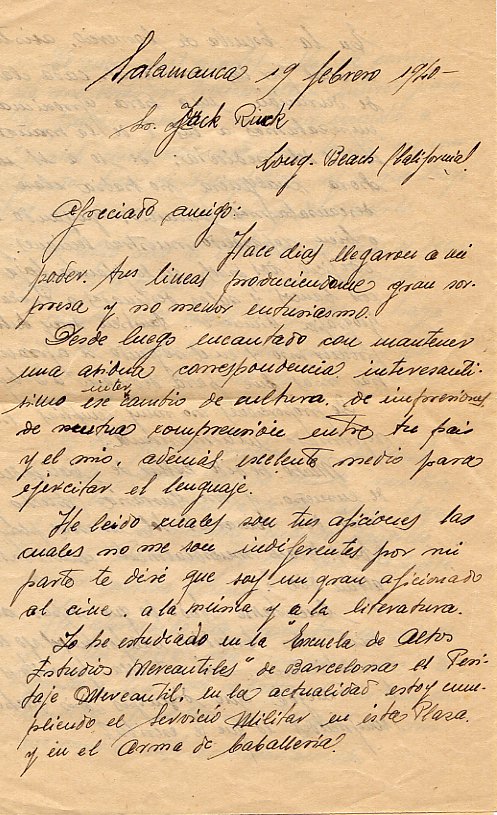 Salamanca 19 febrero 1940-
Sr. Jack Rick
Long-Beach California
Apreciado amigo:
Hace dias llegaron a mi
poder. tus lineas produciendome gran sor-
presa y no menor entusiasmo.
Desde luego encantado con mantener
una asidua correspondencia interesanti-
simo intercambio de cultura. de impresiones,
de mutua comprensión entre tu pais
y el mio, además excelente medio para
ejercitar el lenguaje.
He leido cuales son tus aficiones las
cuales no me son indiferentes por mi
parte te diré que soy un gran aficionado
al cine. a la música y a la literatura.
Yo he estudiado en la "Escuela de Altos
Estudios Mercantiles" de Barcelona el Peri-
taje Mercantil. en la actualidad estoy cum-
pliendo el Servicio Militar en esta Plaza.
y en el Arma de Caballeria.